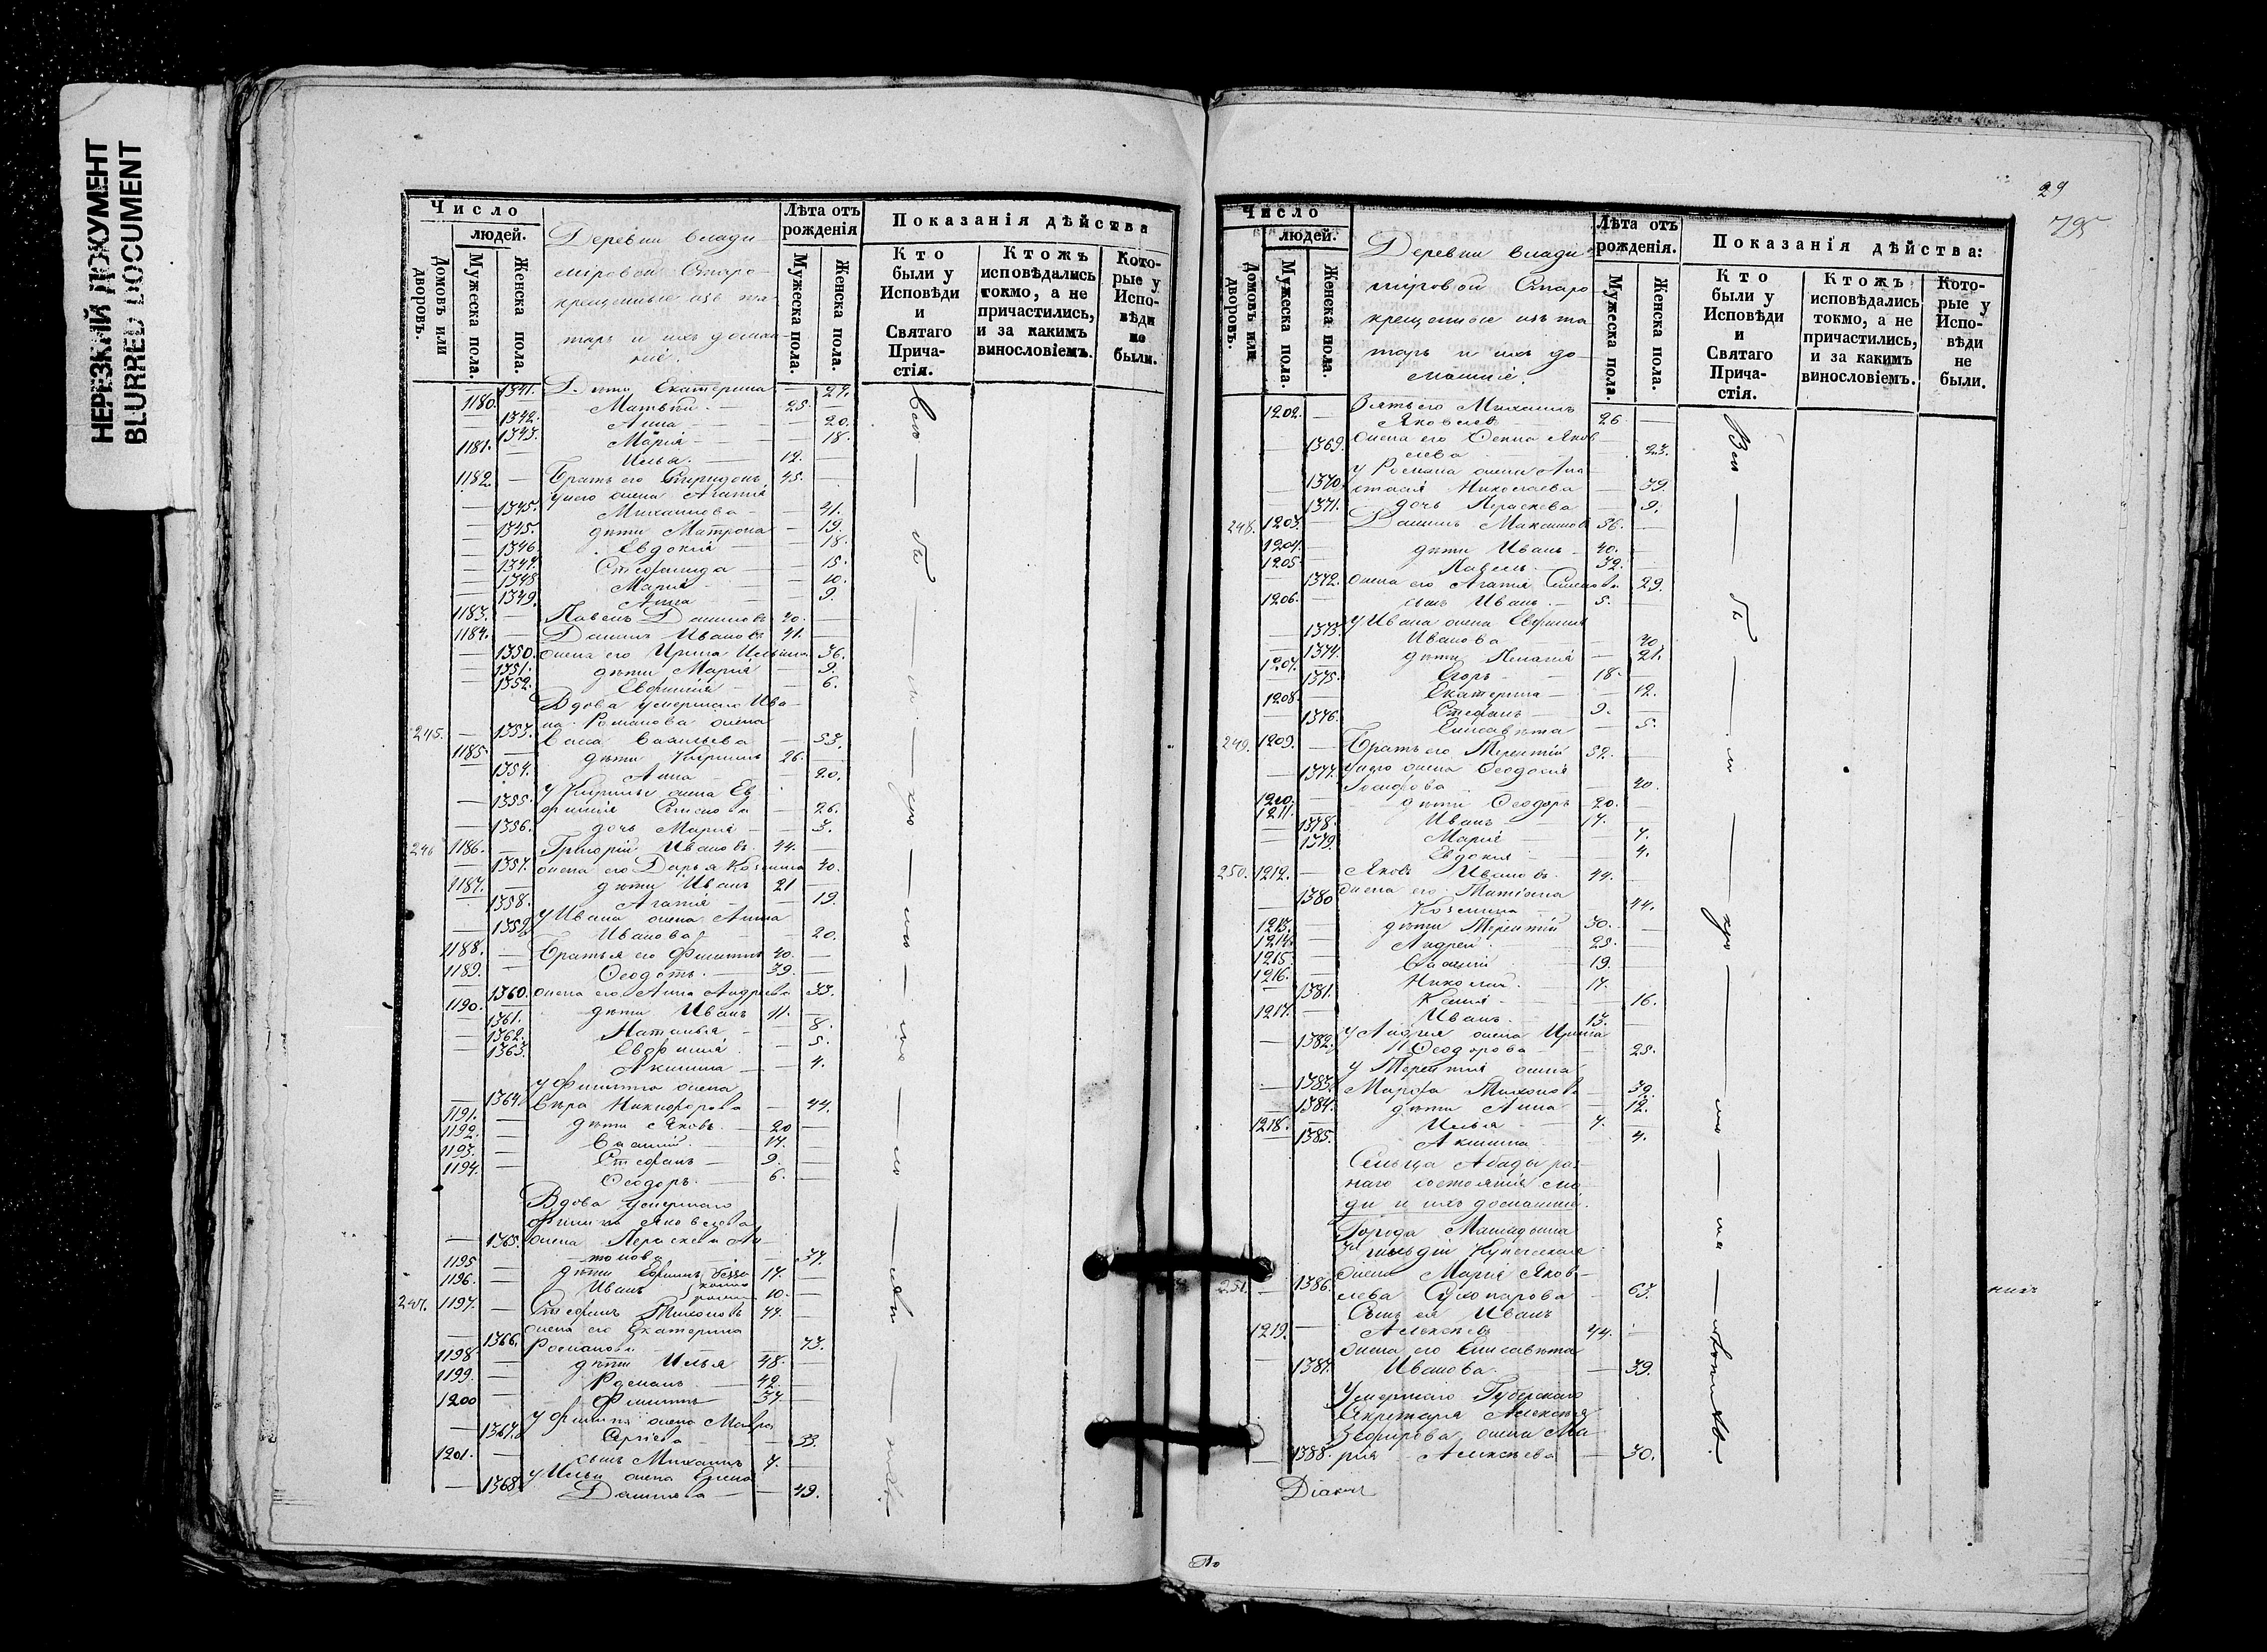 НЕРЕЗКИЙ ДОКУМЕНТ
BLURRED DOCUMENT
Число
людей.
Домовъ или дворовъ.
Мужеска пола.
Женска пола.
Деревни Влади-
мировой Старо-
крещеные изъ та-
таръ и ихъ домаш-
ніе.
Лѣта отъ рожденія
Мужеска пола.
Женска пола.
Показанія дѣйства
Кто были у Исповѣди и Святаго Прича-стія.
Ктожъ исповѣдались токмо, а не причастились, и за какимъ винословіемъ.
Кото-рые у Испо-вѣди не были.
1341. Дѣти Екатерина 27.
1180. Матвѣй 25.
1342. Анна 20.
1343. Марія 18.
1181. Илья 12.
1182. Братъ его Спиридонъ 45.
У него жена Агафія
1345. Михайлова 41.
1345. дѣти Матрона 19.
1346. Евдокія 18.
1347. Степанида 15.
1348. Марія 10.
1349. Анна 9.
1183. Павелъ Даниловъ 40.
1184. Данилъ Ивановъ 41.
1350. жена его Ирина Ильина 36.
1351. дѣти Марія 9.
1352. Евфимія 6.
Вдова умершаго Ива-
на Романова жена
245. 1353. Васса Васильева 53.
1185. дѣти Кирилъ 26.
1354. Анна 20.
У Кирилы жена Ев
1355. фимія Семенова 26.
1356. дочь Марія 3.
246 1186. Григорій Ивановъ 44.
1357. жена его Дарья Козмина 40.
1187. дѣти Иванъ 21
1358. Агафія 19.
У Ивана жена Анна
1359 Иванова 20.
1188. Братья его Филиппъ 40.
1189. Ѳеодотъ 39.
1360. жена его Анна Андреева 33.
1190. дѣти Иванъ 11.
1361. Наталья 8.
1362. Евфимія 5.
1363. Акилина 4.
У Филиппа жена
1364. Вѣра Никифорова 44.
1191. дѣти Яковъ 20
1192. Василій 17.
1193. Стефанъ 9.
1194. Ѳеодоръ 6.
Вдова умершаго
Филипа Яковлева
1365. жена Параскева Ан-
тонова 37.
1195 дѣти Ефимъ 17.
1196. Иванъ 10.
247. 1197. Стефанъ Тихоновъ 77.
жена его Екатерина
1366. Романова 73.
1198 дѣти Илья 48.
1199. Романъ 42.
1200 Филиппъ 37.
У Филипа жена Мавра
1367. Сергіева 33.
1201. сынъ Михаилъ 7.
У Ильи жена Елена
1368 Данилова 49.
29
Число
людей.
Домовъ или дворовъ.
Мужеска пола.
Женска пола.
Деревни Влади-
міровой Старо
крещеные изъ та
таръ и ихъ до-
машніе.
Лѣта отъ рожденія.
Мужеска пола.
Женска пола.
Показанія дѣйства:
Кто были у Исповѣди и Святаго Прича-стія.
Ктожъ исповѣдались токмо, а не причастились, и за какимъ винословіемъ.
Кото-рые у Испо-вѣди не были.
1202. Зять его Михаилъ
Яковлевъ 26
1369. жена его Яков
лева 23.
У Романа жена Ана
1370. стасія Николаева 39.
1371. дочь Параскева 9.
248. 1203. Данилъ Максимовъ 56.
1204. дѣти Иванъ 40.
1205. Павелъ 32.
1372. жена его Агафія Семенова 29.
1206. сынъ Иванъ 5.
У Ивана жена Евфимія
1373. Иванова 40.
1374. дѣти Пелагія 21.
1207. Егоръ 18.
1375. Екатерина 12.
1208. Стефанъ 9.
1376. Елисавета 5.
249. 1209. Братъ его Терентій 52.
1377. у него жена Ѳеодосія
Іосифова 40.
1210. дѣти Ѳеодоръ 20.
1211. Иванъ 17.
1378. Марія 7.
1379. Евдокія 4.
250. 1212. Яковъ Ивановъ 44.
1380 жена его Татіана
Козмина 44.
1213. дѣти Терентій 30.
1214. Андрей 25.
1215. Василій 19.
1216. Николай 17.
1381. Ксенія 16.
1217. Иванъ 13.
У Андрея жена Ирина
1382. Ѳеодорова 25.
У Терентія жена
1383. Марфа Тихонова 32.
1384. дѣти Анна 12.
1218. Илья 7.
1385. Акилина 4.
Сельца Абады раз-
наго состоянія лю-
ди и ихъ домашніи.
Города Мамадыша
3й гильдіи Купеческая
жена Марія Яков-
251. 1386 лева 63.
Сынъ ея Иванъ
1219. Алексѣевъ 44.
жена его Елисавета
1387. Иванова 39.
Умершаго Губерскаго
Секретаря Алексѣя
Зефирова жена Ма-
1388. рія Алексѣева 30.
Діаконъ
По